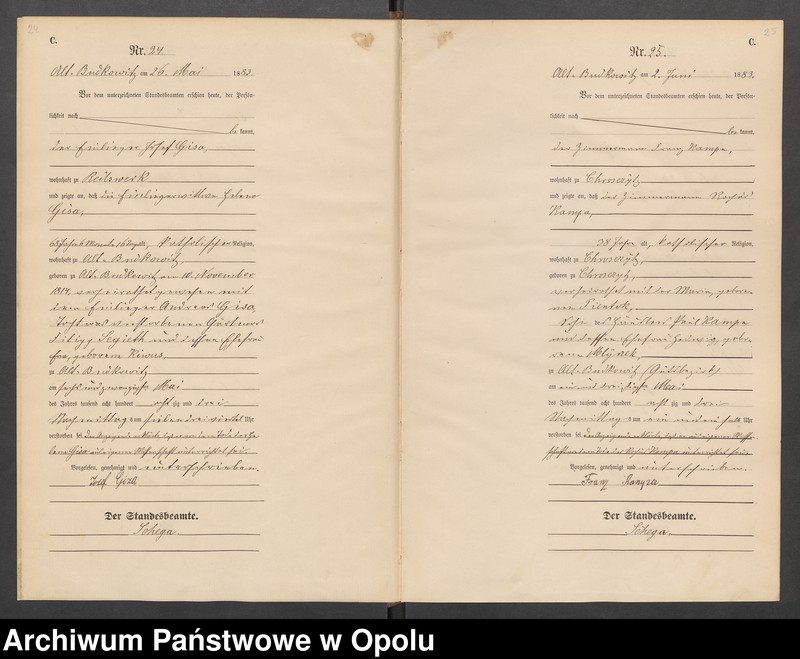 24
C.
Nr. 24.
Alt-Budkowitz am 26. Mai 1883.
Vor dem unterzeichneten Standesbeamten erschien heute, der Persön-
lichkeit nach
be kannt,
der Einlieger Josef Gisa,
wohnhaft zu Reilswerk
und zeigte an, daß die Einliegerwittwe Helena
Gisa,
63 Jahre 6 Monate 16 Tage alt, katholischer Religion,
wohnhaft zu Alt-Budkowitz,
geboren zu Alt-Budkowitz am 10. November
1819, verheirathet gewesen mit
dem Einlieger Andreas Gisa,
Tochter des verstorbenen Gärtners
Filipp Segieth und dessen Ehefrau
geborenen Kiwus,
zu Alt-Budkowitz
am sechs und zwanzigsten Mai
des Jahres tausend acht hundert acht zig und drei
Nachmittag s um sieben dreiviertel Uhr
verstorben sei
Vorgelesen, genehmigt und unterschrieben.
Josef Giza
Der Standesbeamte.
Schega.
25
C.
Nr. 25.
Alt-Budkowitz am 2. Juni 1883.
Vor dem unterzeichneten Standesbeamten erschien heute, der Persön-
lichkeit nach
be kannt,
der Zimmermann Franz Kampa,
wohnhaft zu Chrosczÿtz
und zeigte an, daß der Zimmermann
Kampa,
38 Jahre alt, katholischer Religion,
wohnhaft zu Chrosczÿtz,
geboren zu Chrosczÿtz,
verheirathet mit der Maria, gebore-
nen Pientok,
Sohn des Häusler Paul Kampa
und dessen Ehefrau Hedwig, gebo-
rene Mlÿnek,
zu Alt-Budkowitz (Gutsbezirk)
am ein und dreißigsten Mai
des Jahres tausend acht hundert acht zig und drei
Nachmittag s um ein und ein halb Uhr
verstorben sei
Vorgelesen, genehmigt und unterschrieben
Franz Kampa
Der Standesbeamte.
Schega.
Archiwum Państwowe w Opolu